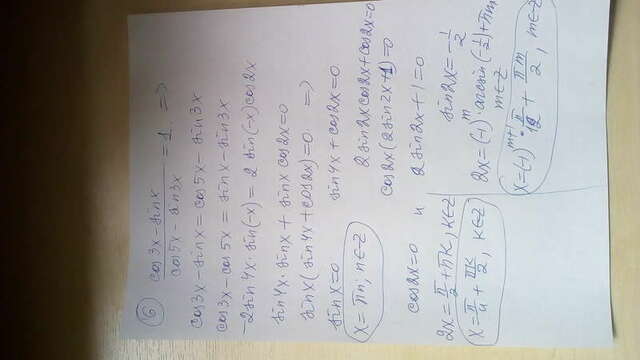 6
(cos3x - sinx)/(cos5x - sin3x) = 1. =>
cos3x - sinx = cos5x - sin3x
cos3x - cos5x = sinx - sin3x
-2sin4x·sin(-x) = 2 sin(-x)cos2x
sin4x·sinx + sinx cos2x = 0
sinx(sin4x + cos2x) = 0 =>
sinx = 0 sin4x + cos2x = 0
x = πn; n∈Z 2sin2x cos2x + cos2x = 0
cos2x(2sin2x + 1) = 0
cos2x = 0 и 2sin2x + 1 = 0
2x = π/2 + πk, k∈Z sin2x = -1/2
x = π/4 + πk/2, k∈Z 2x = (-1)^m·arcsin(-1/2) + πm,
m∈Z
x = (-1)^(m+1)·π/12 + πm/2, m∈Z